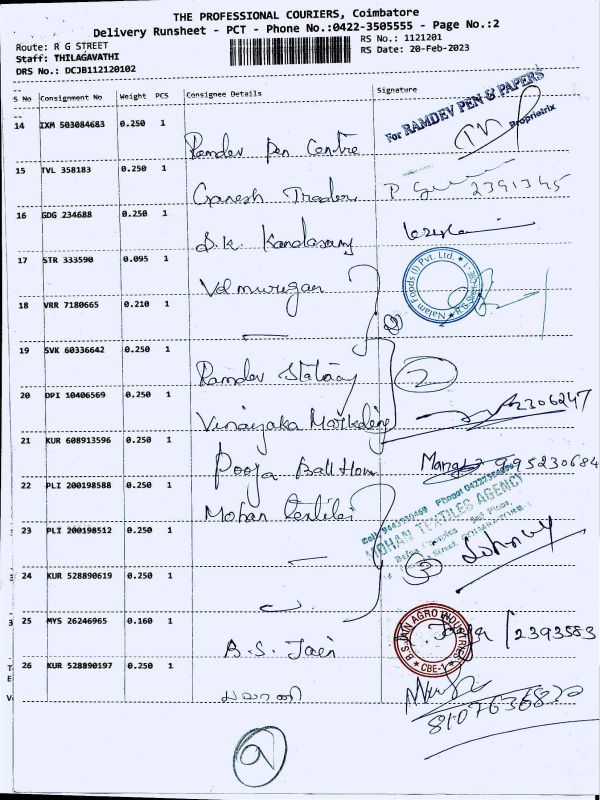 THE PROFESSIONAL COURIERS, Coimbatore
Delivery Runsheet - PCT - Phone No.:0422-3505555 - Page No.:2
Route: R G STREET
RS No.: 1121201
Staff: THILAGAVATHI
RS Date: 20-Feb-2023
DRS No.: DCJB112120102
S No Consignment No Weight PCS Consignee Details Signature
For RAMDEV PEN & PAPERS
Proprietrix
14 IXM 503084683 0.250 1
Ramdev Pen Centre
15 TVL 358183 0.250 1
Ganesh Traders 2391345
16 GDG 234688 0.250 1
S.K. Kandasamy
17 STR 333590 0.095 1
Velmurugan
Nalam Foods (I) Pvt. Ltd.
18 VRR 7180665 0.210 1
2
19 SVK 60336642 0.250 1
Ramdev 2
20 DPI 10406569 0.250 1
Vinayaka Marketing 2306247
21 KUR 608913596 0.250 1
Pooja Ball House 995230684
22 PLI 200198588 0.250 1
Mohan Textiles
MOHAN TEXTILES AGENCY
23 PLI 200198512 0.250 1
Johnny
3
24 KUR 528890619 0.250 1
25 MYS 26246965 0.160 1
B.S. Jain
B.S. JAIN AGRO INDUSTRIES
CBE-1
2393583
26 KUR 528890197 0.250 1
8107636820
9